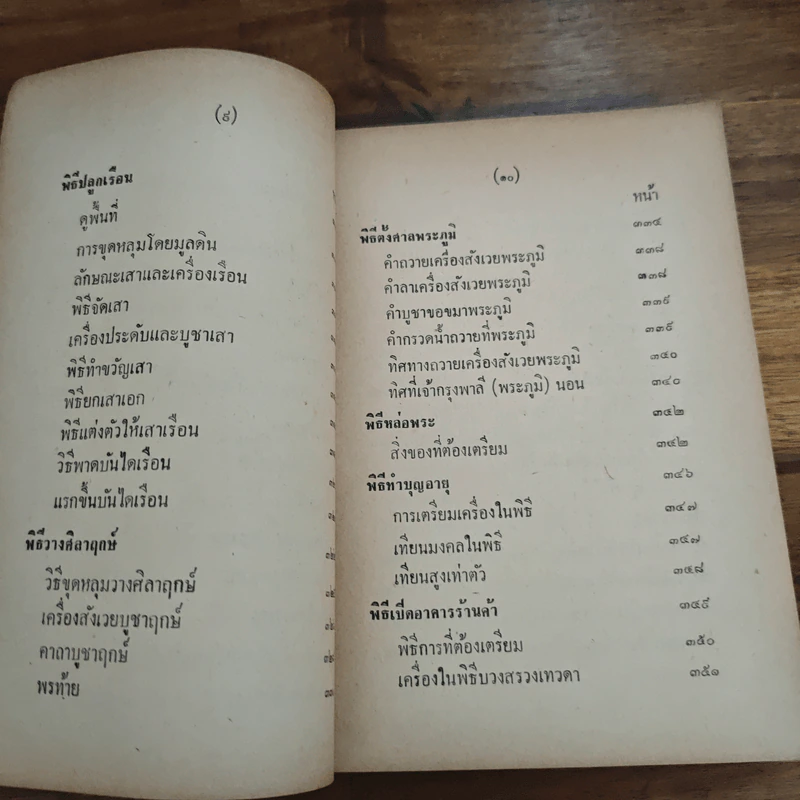 (๙)
พิธีปลูกเรือน
ดูพื้นที่
การขุดหลุมโดยมูลดิน
ลักษณะเสาและเครื่องเรือน
พิธีจัดเสา
เครื่องประดับและบูชาเสา
พิธีทำขวัญเสา
พิธียกเสาเอก
พิธีแต่งตัวให้เสาเรือน
วิธีพาดบันไดเรือน
แรกขึ้นบันไดเรือน
พิธีวางศิลาฤกษ์
วิธีขุดหลุมวางศิลาฤกษ์
เครื่องสังเวยบูชาฤกษ์
คาถาบูชาฤกษ์
พรท้าย
(๑๐)
หน้า
พิธีตั้งศาลพระภูมิ ๓๓๔
คำถวายเครื่องสังเวยพระภูมิ ๓๓๘
คำลาเครื่องสังเวยพระภูมิ ๓๓๘
คำบูชาขอขมาพระภูมิ ๓๓๙
คำกรวดน้ำถวายที่พระภูมิ ๓๓๙
ทิศทางถวายเครื่องสังเวยพระภูมิ ๓๔๐
ทิศที่เจ้ากรุงพาลี (พระภูมิ) นอน ๓๔๐
พิธีหล่อพระ ๓๔๒
สิ่งของที่ต้องเตรียม ๓๔๒
พิธีทำบุญอายุ ๓๔๖
การเตรียมเครื่องในพิธี ๓๔๗
เทียนมงคลในพิธี ๓๔๗
เทียนสูงเท่าตัว ๓๔๘
พิธีเปิดอาคารร้านค้า ๓๔๙
พิธีการที่ต้องเตรียม ๓๕๐
เครื่องในพิธีบวงสรวงเทวดา ๓๕๑